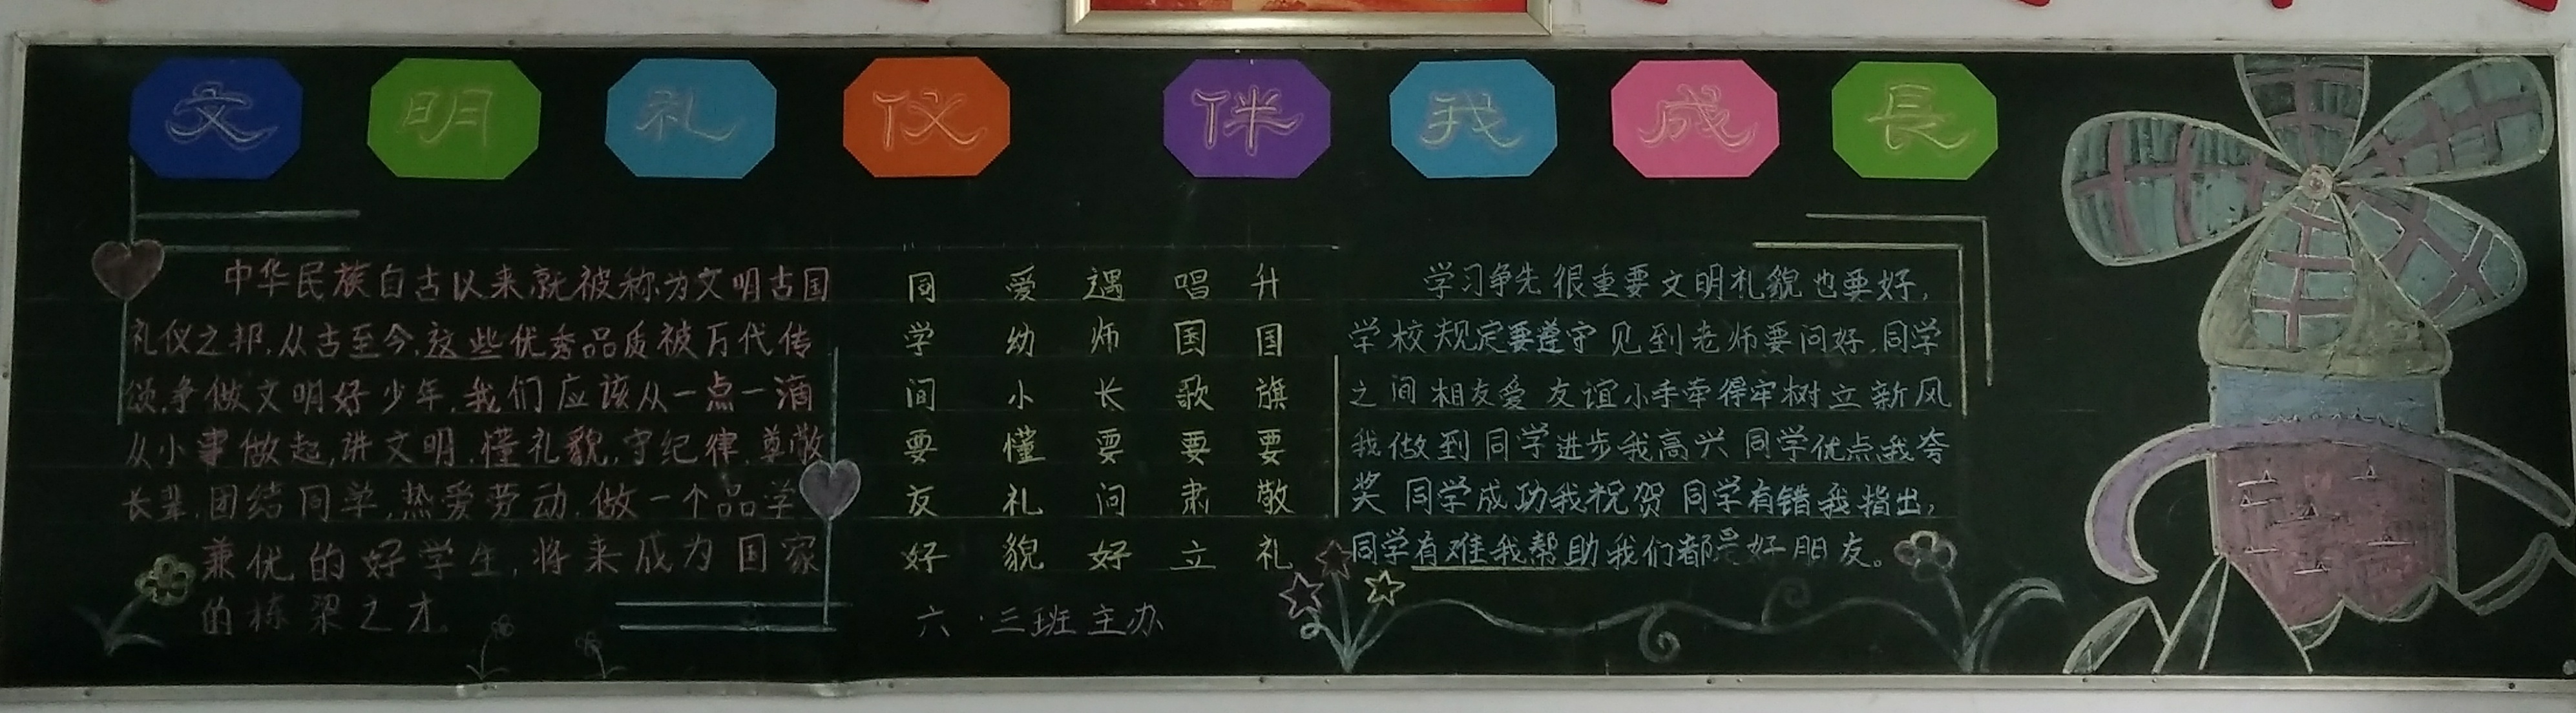 文明礼仪 伴我成長
中华民族自古以来就被称为文明古国
礼仪之邦,从古至今,这些优秀品质被万代传
颂,争做文明好少年,我们应该从一点一滴
从小事做起,讲文明,懂礼貌,守纪律,尊敬
长辈,团结同学,热爱劳动,做一个品学
兼优的好学生,将来成为国家
的栋梁之才
升国旗要敬礼
唱国歌要肃立
遇师长要问好
爱幼小懂礼貌
同学间要友好
六·三班主办
学习争先很重要文明礼貌也要好,
学校规定要遵守见到老师要问好,同学
之间相友爱友谊小手牵得牢树立新风
我做到同学进步我高兴同学优点我夸
奖同学成功我祝贺同学有错我指出,
同学有难我帮助我们都是好朋友。